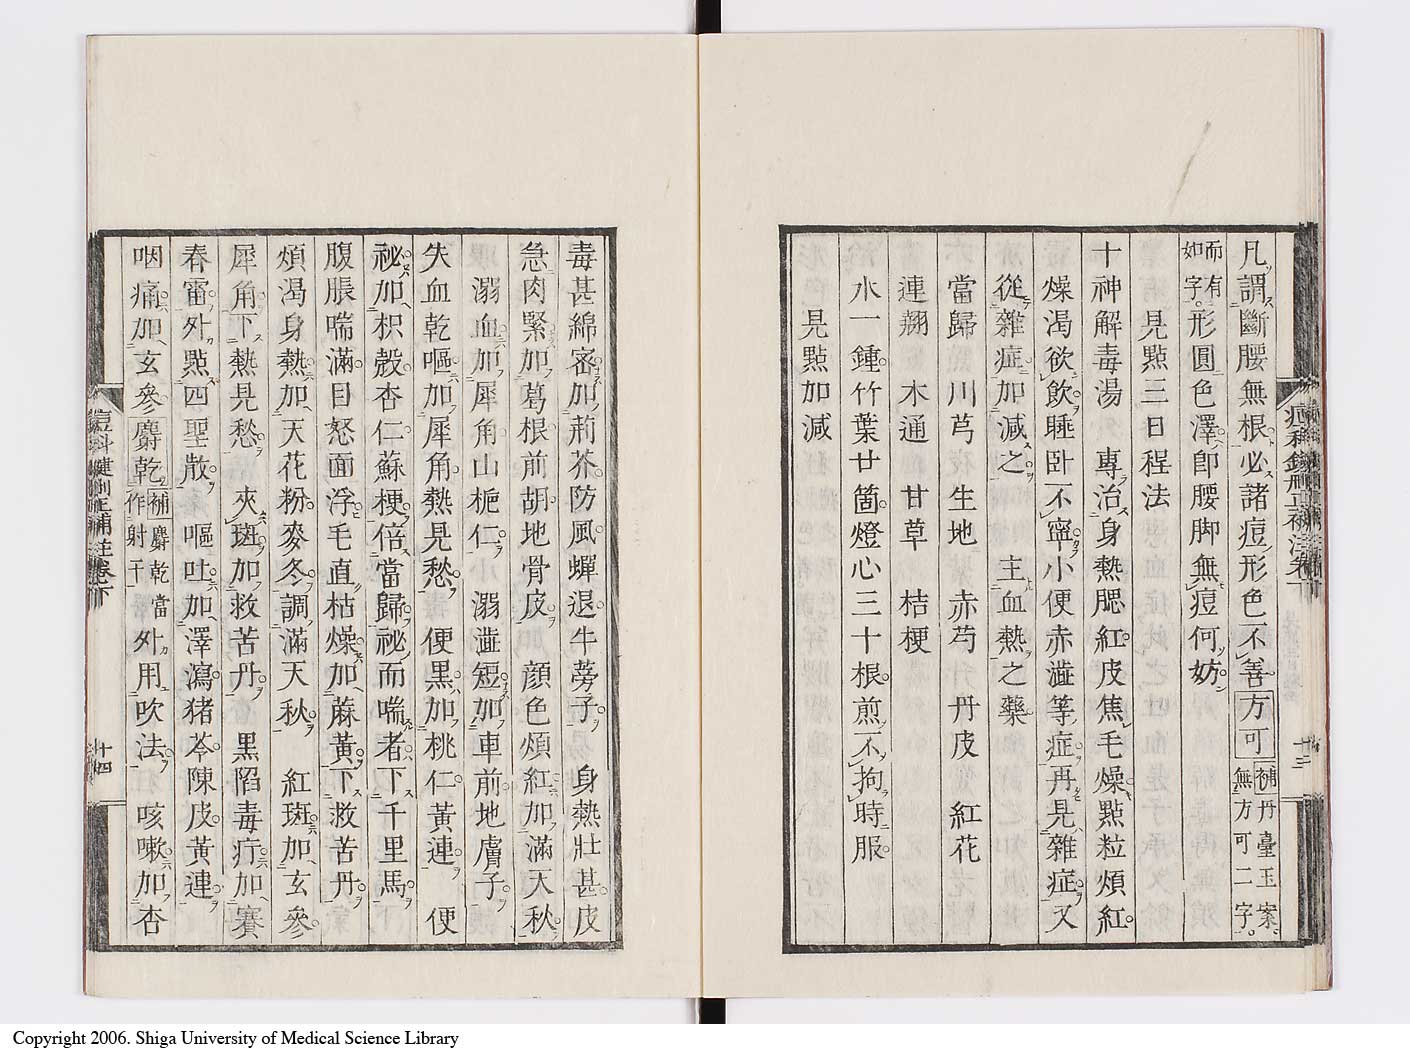 凡謂斷腰無根必諸痘形色不善方可補丹臺玉案無方可二字
而有如字形圓色澤卽腰脚無痘何妨
見點三日程法
十神解毒湯 專治身熱腮紅皮焦毛燥點粒煩紅
燥渴欲飮睡臥不寧小便赤澁等症再見雜症又
從雜症加減之 主血熱之藥
當歸 川芎 生地 赤芍 丹皮 紅花
連翹 木通 甘草 桔梗
水一鍾竹葉廿箇燈心三十根煎不拘時服
見點加減
毒甚綿密加荊芥防風蟬退牛蒡子 身熱壯甚皮
急肉緊加葛根前胡地骨皮 顏色煩紅加滿天秋
溺血加犀角山梔仁 溺澁短加車前地膚子
失血乾嘔加犀角熱見愁 便黑加桃仁黃連 便
秘加枳殼杏仁蘇梗倍當歸秘而喘者下千里馬
腹脹喘滿目怒面浮毛直枯燥加蔴黃下救苦丹
煩渴身熱加天花粉麥冬調滿天秋 紅斑加玄參
犀角下熱見愁 夾斑加救苦丹 黑陷毒疔加賽
春雷外點四聖散 嘔吐加澤瀉猪苓陳皮黃連
咽痛加玄參麝乾補麝乾當作射干外用吹法 咳嗽加杏
痘科鍵刪正補註卷下
十三
痘科鍵刪正補註卷下
十四
Copyright 2006. Shiga University of Medical Science Library